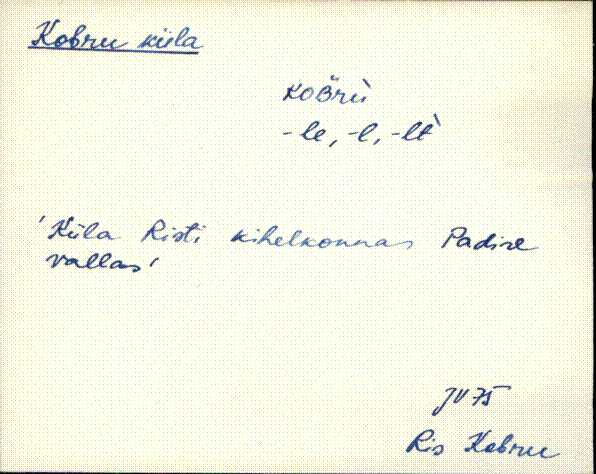 Kobru küla
KOBru
-le, -l, -lt
'Küla Risti kihelkonnas Padise
vallas'
JV 75
Ris Kobru